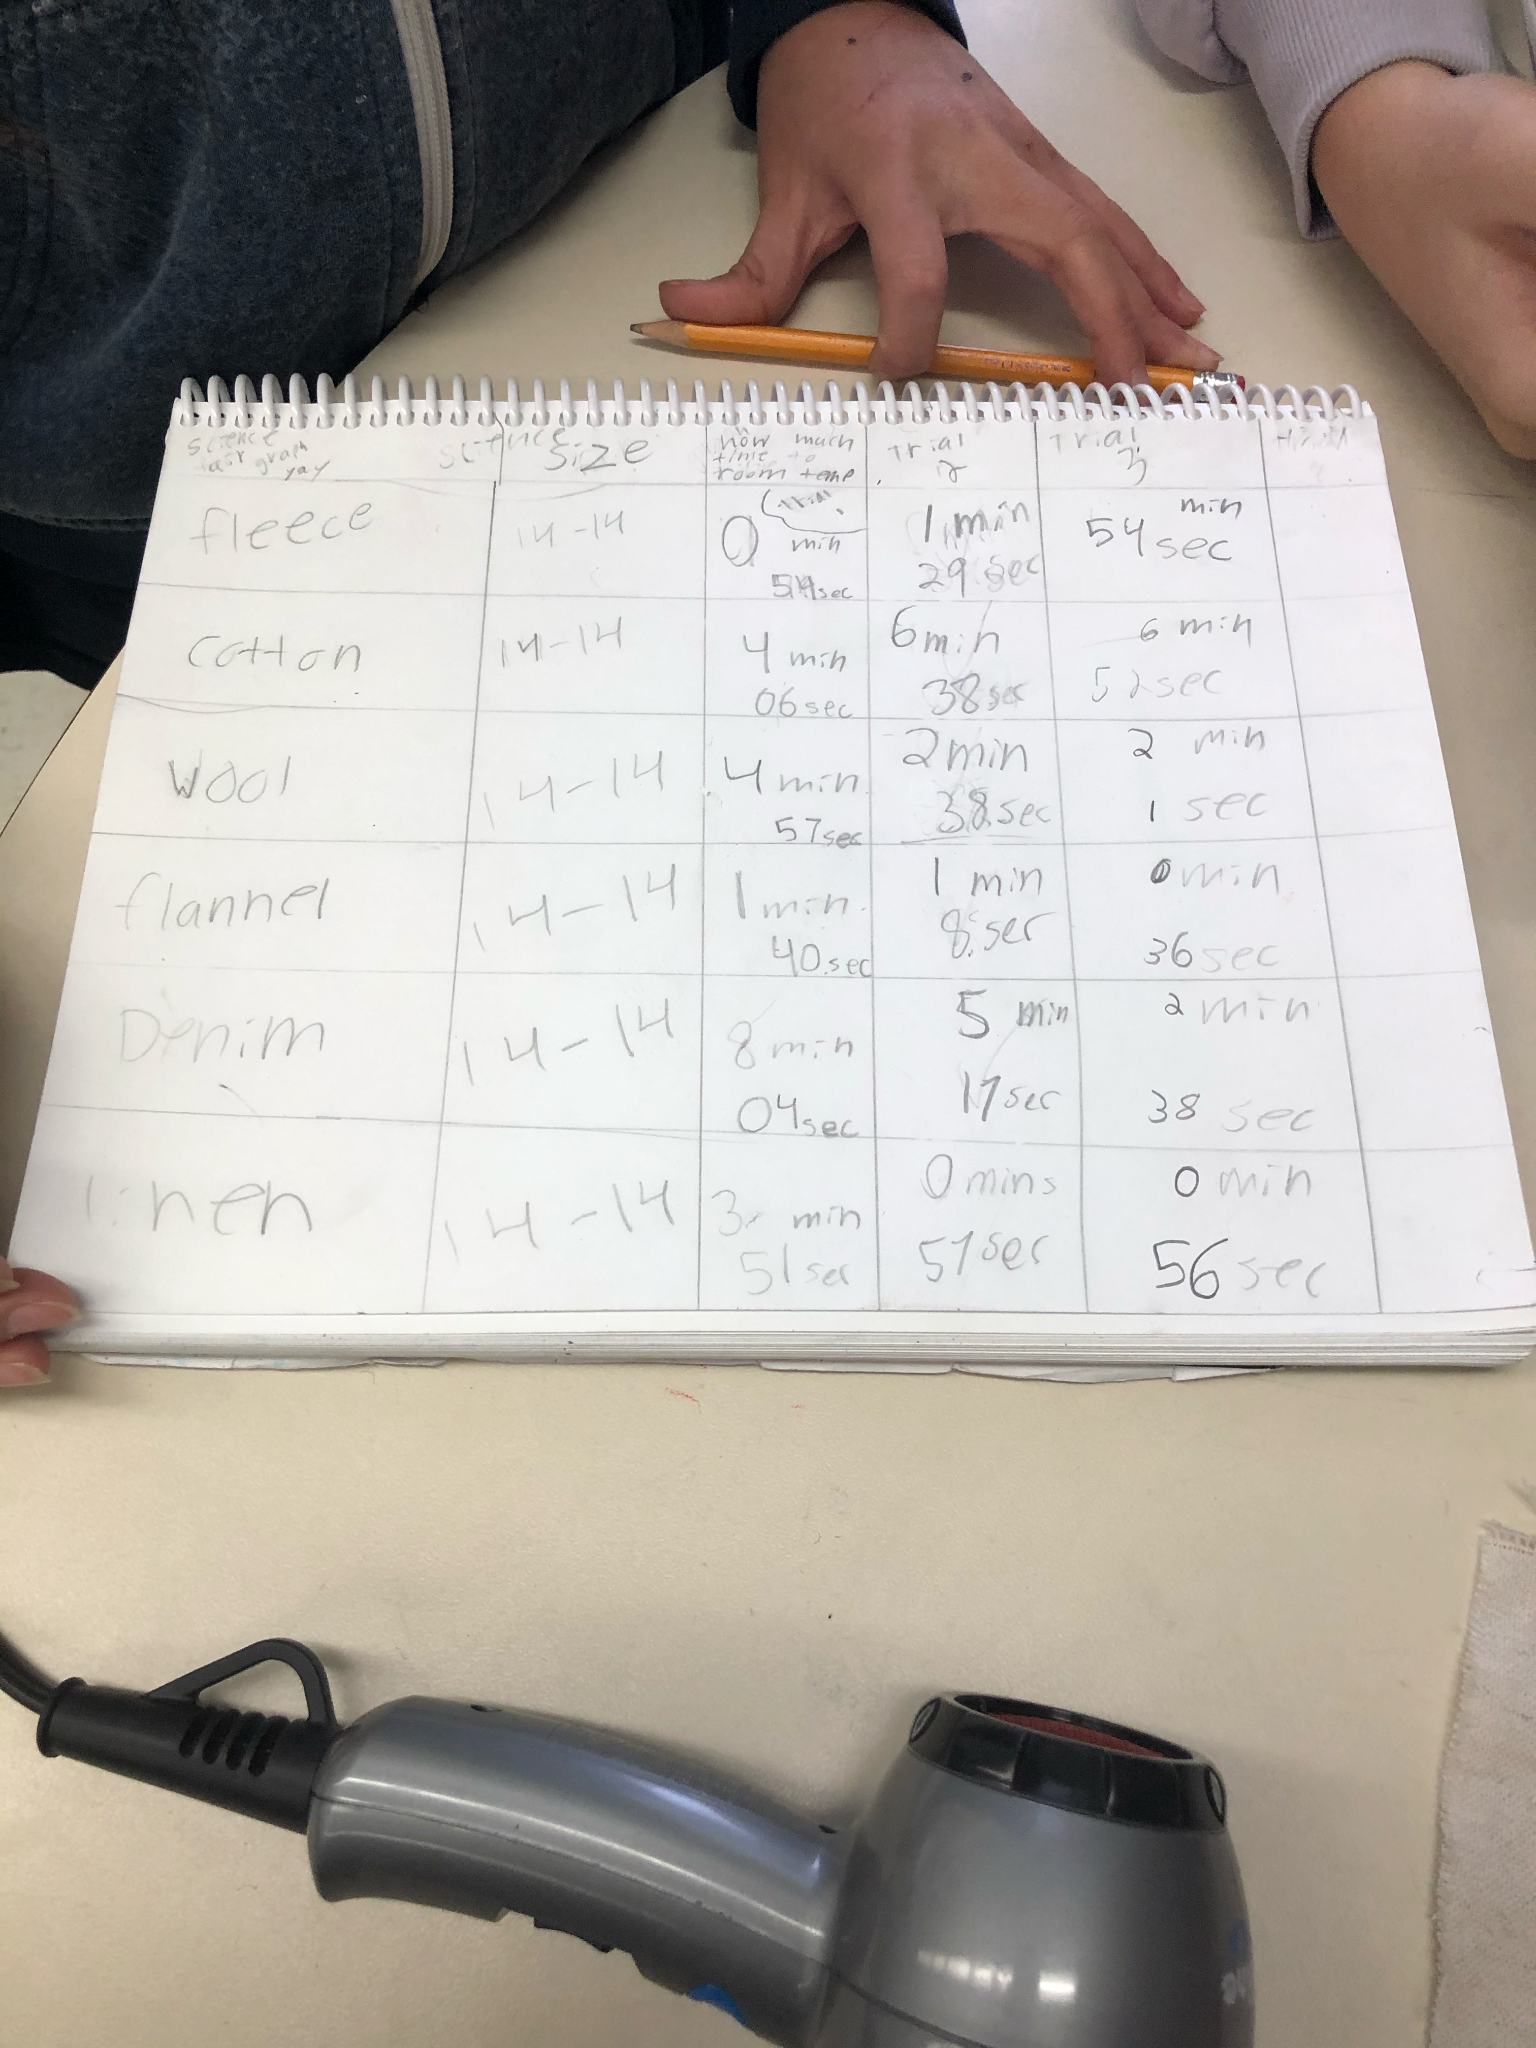 science
fair graph
yay
science
size
how much
time to
room temp
trial
Trial
2
Trial
3
fleece
14-14
0 min
54sec
1 min
29 sec
min
54 sec
cotton
14-14
4 min
06 sec
6 min
38 sec
6 min
52 sec
wool
14-14
4 min
57 sec
2 min
38 sec
2 min
1 sec
flannel
14-14
1 min
40 sec
1 min
8 ser
0 min
36 sec
Denim
14-14
8 min
04 sec
5 min
17 ser
2 min
38 sec
linen
14-14
3 min
51 ser
0 mins
57 ser
0 min
56 sec